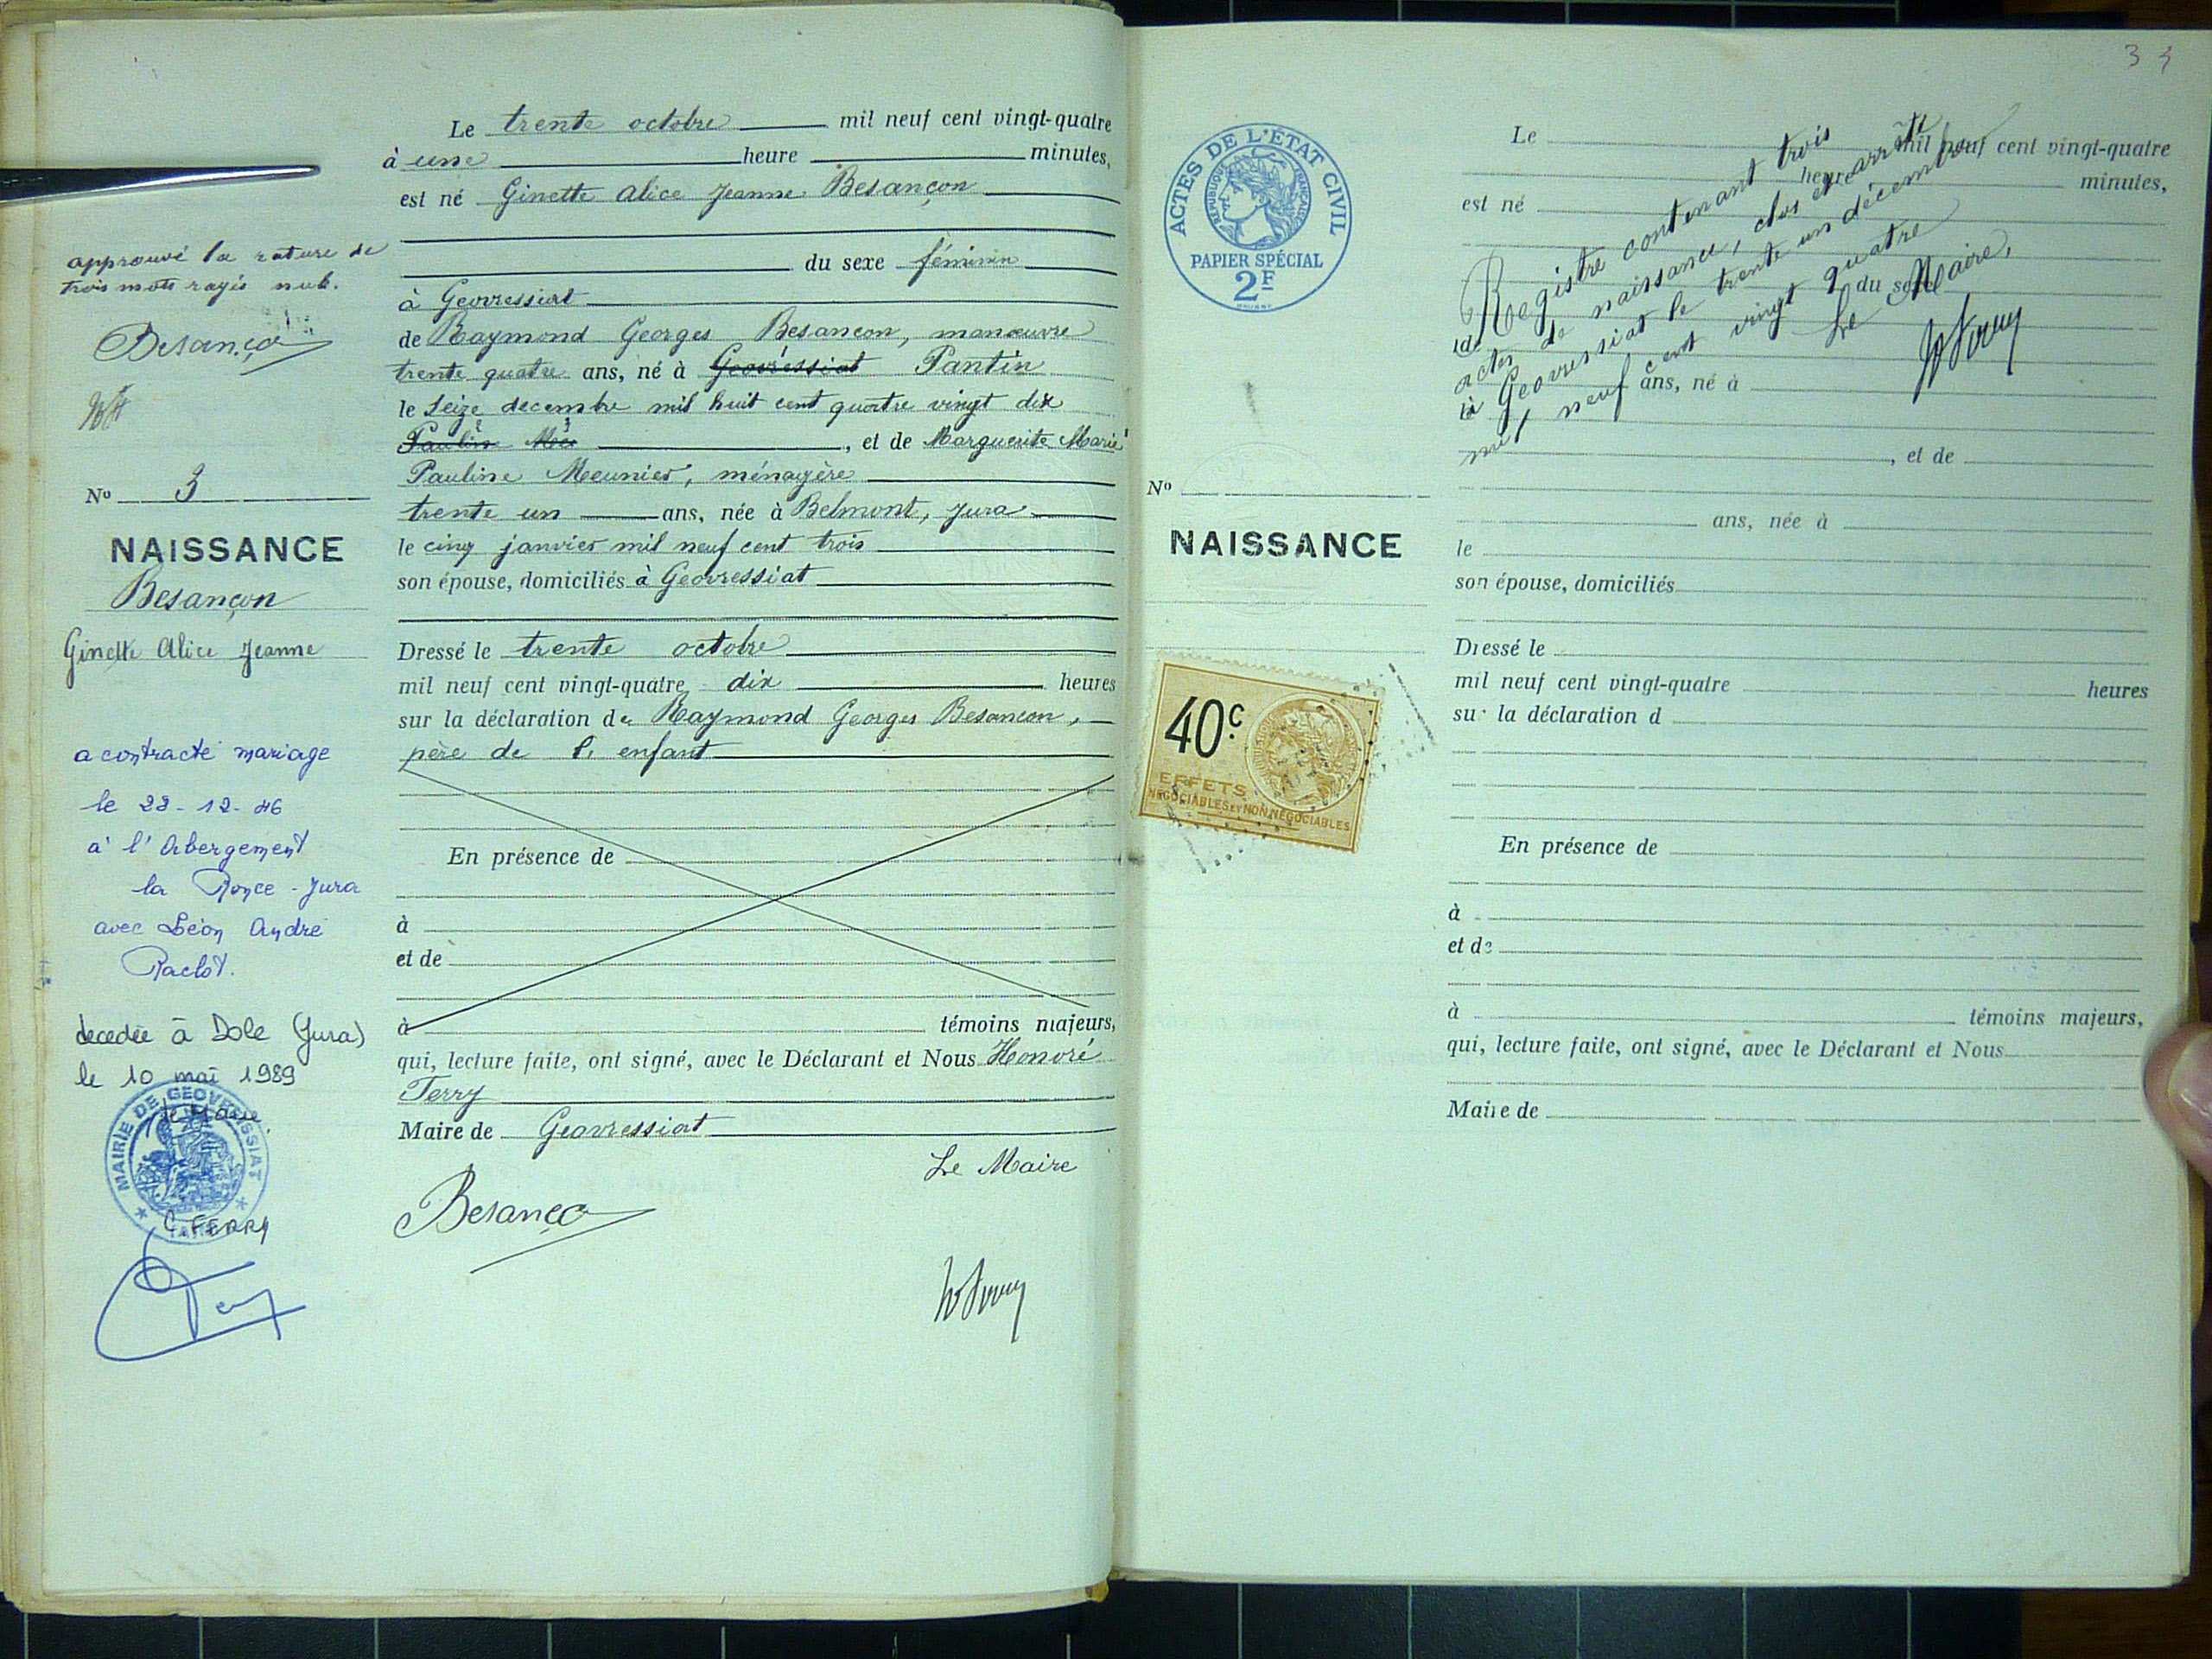 approuvé la rature de
trois mots rayés nuls.
Besançon
No 3
NAISSANCE
Besançon
Ginette Alice Jeanne
a contracté mariage
le 28-12-46
à l'Abergement
la Ronce - Jura
avec Léon André
Raclot.
décédée à Dole (Jura)
le 10 mai 1989
Le Maire
MAIRIE DE GEOVRESSIAT
C FERRY
Le trente octobre mil neuf cent vingt-quatre
à une heure minutes,
est né Ginette Alice Jeanne Besançon
du sexe féminin
à Geovressiat
de Raymond Georges Besancon, manœuvre
trente quatre ans, né à Geovressiat Pantin
le seize decembre mil huit cent quatre vingt dix
, et de Marguerite Marie
Pauline Meunier, ménagère
trente un ans, née à Belmont, Jura
le cinq janvier mil neuf cent trois
son épouse, domiciliés à Geovressiat
Dressé le trente octobre
mil neuf cent vingt-quatre dix heures
sur la déclaration de Raymond Georges Besancon,
père de l'enfant
En présence de
à
et de
à témoins majeurs,
qui, lecture faite, ont signé, avec le Déclarant et Nous Honoré
Ferry
Maire de Geovressiat
Le Maire
Besançon
3
ACTES DE L'ÉTAT CIVIL
RÉPUBLIQUE FRANÇAISE
PAPIER SPÉCIAL
2F
No
NAISSANCE
40c
EFFETS
NÉGOCIABLES ET NON NÉGOCIABLES
Registre contenant trois
actes de naissance, clos et arrêté
à Geovressiat le trente un décembre
mil neuf cent vingt quatre
Le Maire,
Le mil neuf cent vingt-quatre
heure minutes,
est né
du sexe
de
ans, né à
, et de
ans, née à
le
son épouse, domiciliés
Dressé le
mil neuf cent vingt-quatre heures
sur la déclaration d
En présence de
à
et de
à témoins majeurs,
qui, lecture faite, ont signé, avec le Déclarant et Nous
Maire de